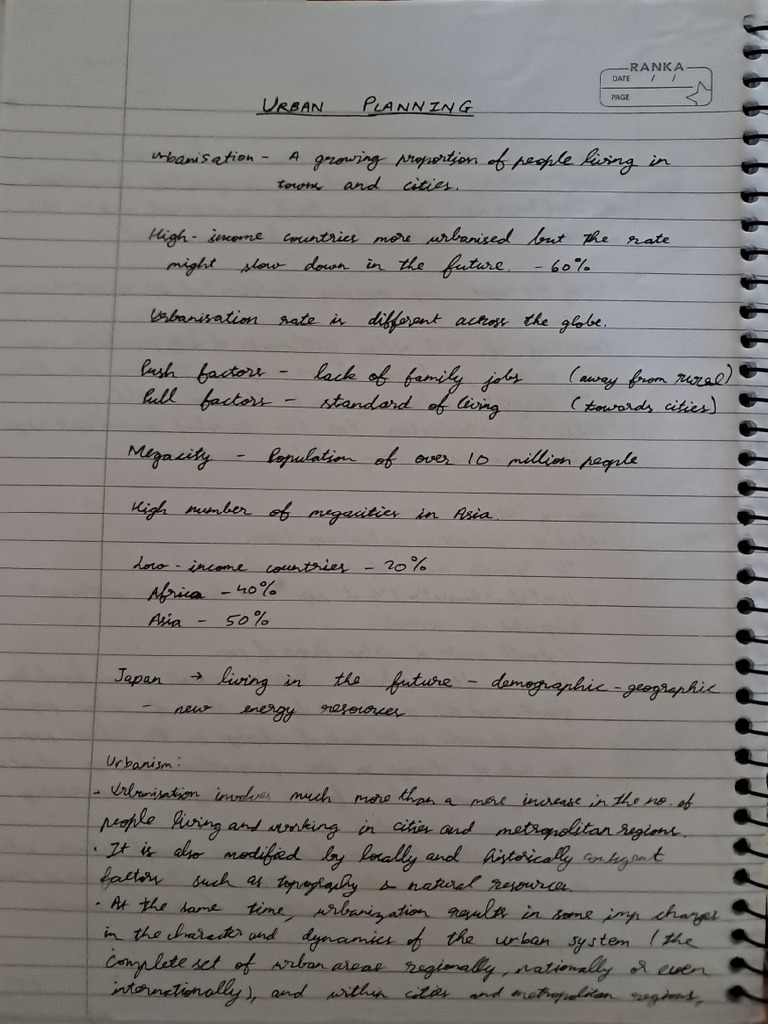 RANKA
DATE / /
PAGE
URBAN PLANNING
Urbanisation - A growing proportion of people living in
towns and cities.
High-income countries more urbanised but the rate
might slow down in the future. - 60%
Urbanisation rate is different across the globe.
Push factors - lack of family jobs (away from rural)
Pull factors - standard of living (towards cities)
Megacity - Population of over 10 million people
High number of megacities in Asia.
Low-income countries - 20%
Africa - 40%
Asia - 50%
Japan → living in the future - demographic - geographic
- new energy resources
Urbanism:
- Urbanisation involves much more than a mere increase in the no. of
people living and working in cities and metropolitan regions.
• It is also modified by locally and historically contingent
factors such as topography & natural resources.
• At the same time, urbanization results in some imp changes
in the character and dynamics of the urban system (the
complete set of urban areas regionally, nationally or even
internationally), and within cities and metropolitan regions,